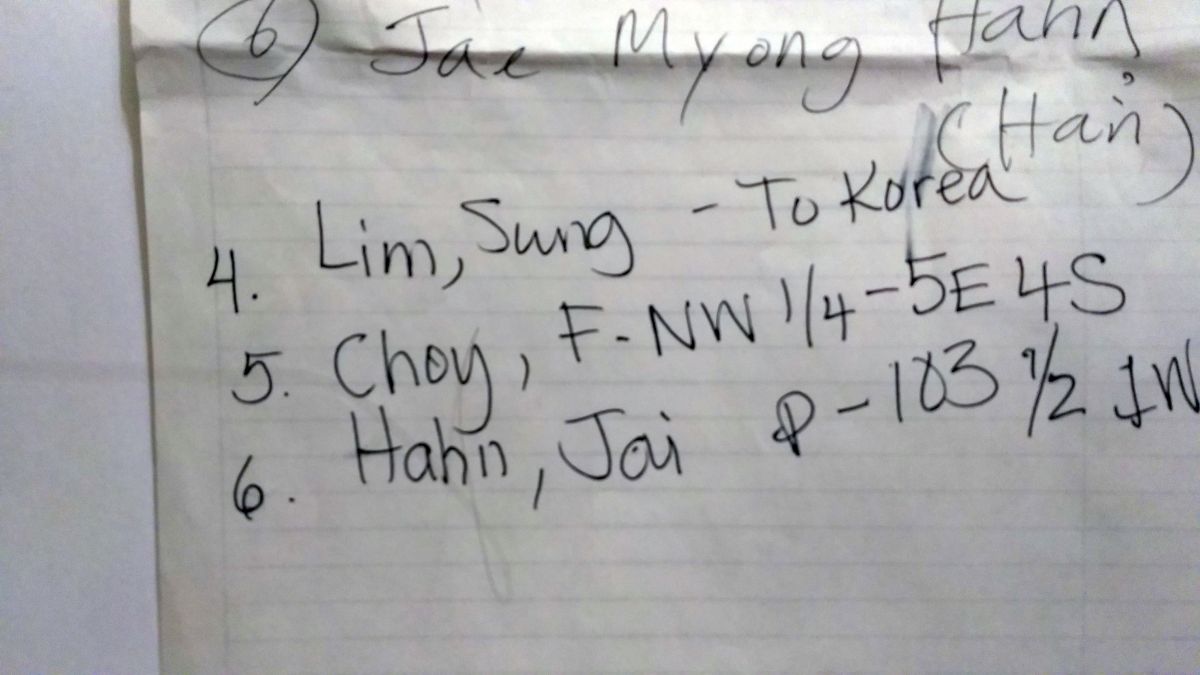 6 Jae Myong Hahn
(Han)
4. Lim, Sung - To Korea
5. Choy, F - NW 1/4 - 5E 4S
6. Hahn, Jai P - 103 1/2 1W